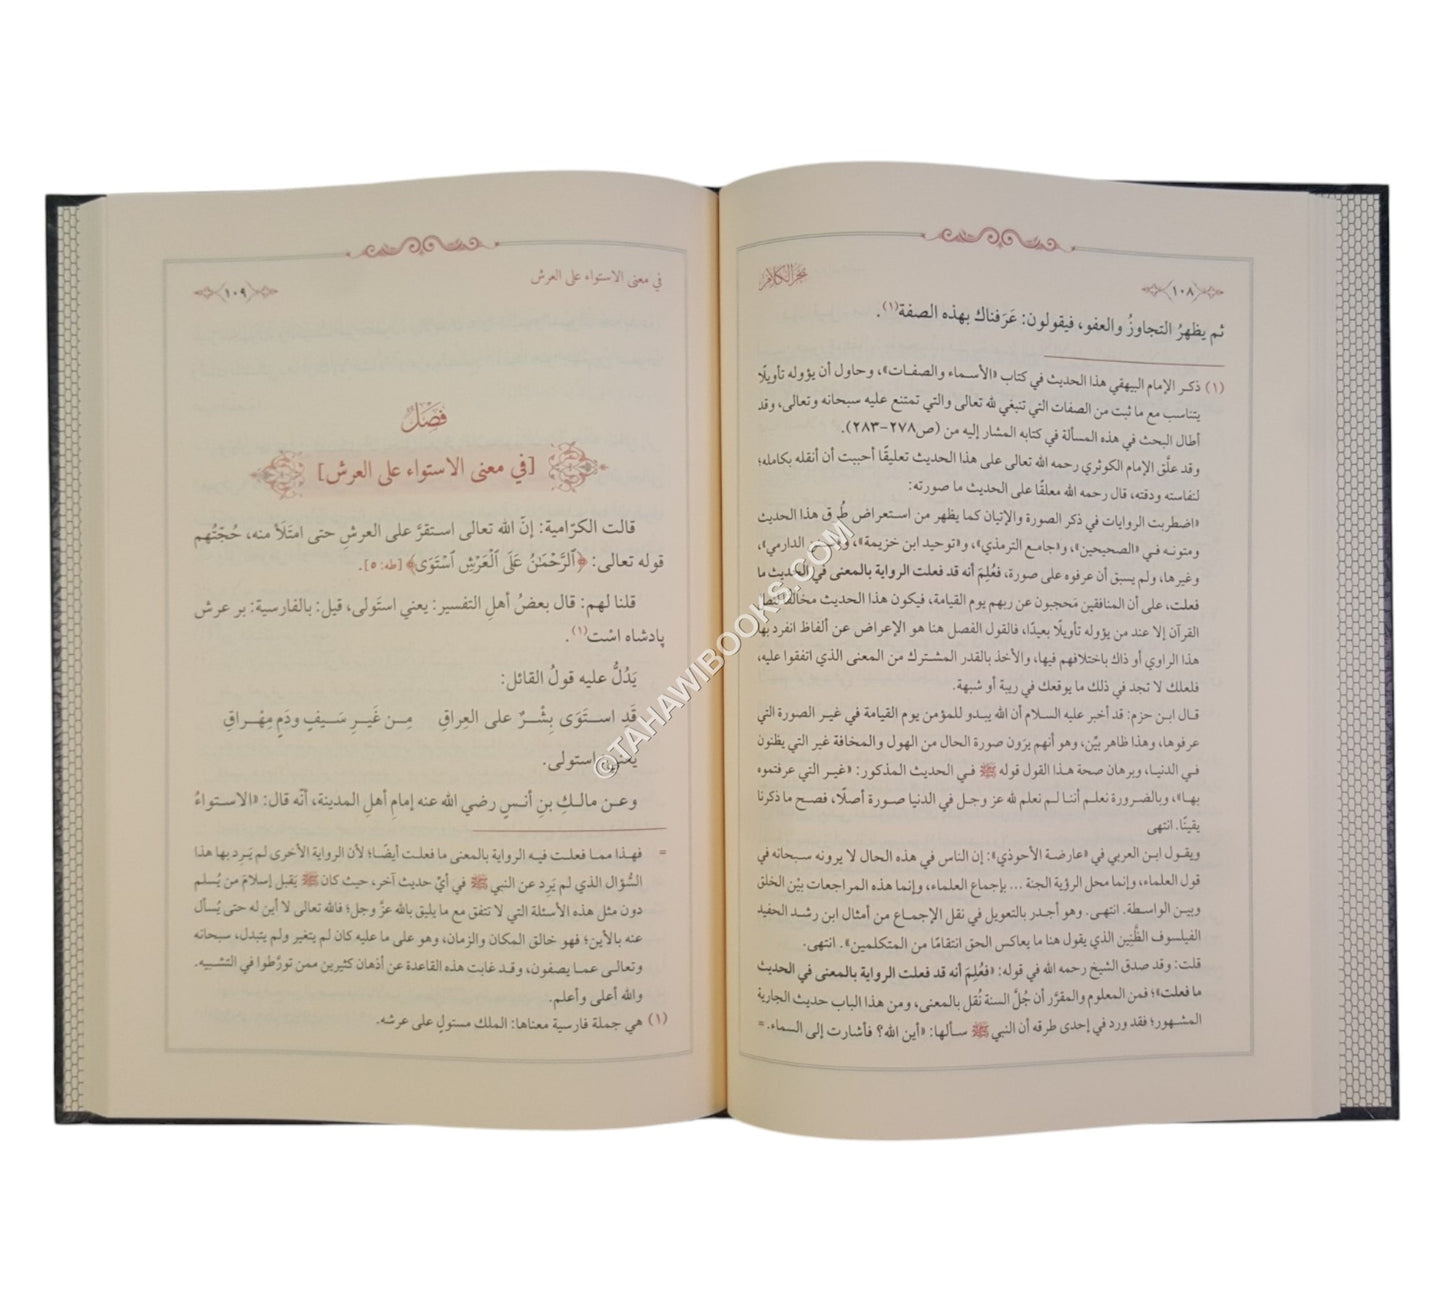 بحر الكلام
﴿١٠٨﴾
ثم يظهرُ التجاوزُ والعفو، فيقولون: عَرَفناك بهذه الصفة(١).
(١) ذكر الإمام البيهقي هذا الحديث في كتاب «الأسماء والصفات»، وحاول أن يؤوله تأويلًا
يتناسب مع ما ثبت من الصفات التي تنبغي لله تعالى والتي تمتنع عليه سبحانه وتعالى، وقد
أطال البحث في هذه المسألة في كتابه المشار إليه من (ص٢٧٨-٢٨٣).
وقد علَّق الإمام الكوثري رحمه الله تعالى على هذا الحديث تعليقًا أحببت أن أنقله بكامله؛
لنفاسته ودقته، قال رحمه الله معلقًا على الحديث ما صورته:
«اضطربت الروايات في ذكر الصورة والإتيان كما يظهر من استعراض طُرق هذا الحديث
ومتونه في «الصحيحين»، و«جامع الترمذي»، و«توحيد ابن خزيمة»، و«سنن الدارمي»،
وغيرها، ولم يسبق أن عرفوه على صورة، فعُلِمَ أنه قد فعلت الرواية بالمعنى في الحديث ما
فعلت، على أن المنافقين مَحجبون عن ربهم يوم القيامة، فيكون هذا الحديث مخالفًا لنص
القرآن إلا عند من يؤوله تأويلًا بعيدًا، فالقول الفصل هنا هو الإعراض عن ألفاظ انفرد بها
هذا الراوي أو ذاك باختلافهم فيها، والأخذ بالقدر المشترك من المعنى الذي اتفقوا عليه،
فلعلك لا تجد في ذلك ما يوقعك في ريبة أو شبهة.
قال ابن حزم: قد أخبر عليه السلام أن الله يبدو للمؤمن يوم القيامة في غير الصورة التي
عرفوها، وهذا ظاهر بيِّن، وهو أنهم يرَون صورة الحال من الهول والمخافة غير التي يظنون
في الدنيا، وبرهان صحة هذا القول قوله ﷺ في الحديث المذكور: «غير التي عرفتموه
بها»، وبالضرورة نعلم أننا لم نعلم لله عز وجل في الدنيا صورة أصلًا، فصح ما ذكرنا
يقينًا. انتهى
ويقول ابن العربي في «عارضة الأحوذي»: إن الناس في هذه الحال لا يرونه سبحانه في
قول العلماء، وإنما محل الرؤية الجنة ... بإجماع العلماء، وإنما هذه المراجعات بيْن الخلق
وبين الواسطة. انتهى. وهو أجدر بالتعويل في نقل الإجماع من أمثال ابن رشد الحفيد
الفيلسوف الظَّنِين الذي يقول هنا ما يعاكس الحق انتقامًا من المتكلمين». انتهى.
قلت: وقد صدق الشيخ رحمه الله في قوله: «فعُلِمَ أنه قد فعلت الرواية بالمعنى في الحديث
ما فعلت»؛ فمن المعلوم والمقرَّر أن جُلَّ السنة نُقل بالمعنى، ومن هذا الباب حديث الجارية
المشهور؛ فقد ورد في إحدى طرقه أن النبي ﷺ سألها: «أين الله؟ فأشارت إلى السماء. =
في معنى الاستواء على العرش
﴿١٠٩﴾
فَصْلٌ
[في معنى الاستواء على العرش]
قالت الكرّامية: إنّ الله تعالى استقرَّ على العرشِ حتى امتَلَأ منه، حُجّتُهم
قوله تعالى: ﴿ٱلرَّحْمَٰنُ عَلَى ٱلْعَرْشِ ٱسْتَوَىٰ﴾ [طه: ٥].
قلنا لهم: قال بعضُ أهلِ التفسير: يعني استَولى، قيل: بالفارسية: بر عرش
پادشاه اسْت(١).
يَدُلُّ عليه قولُ القائل:
قَدِ استَوَى بِشْرٌ على العراقِ من غَيرِ سَيفٍ ودَمٍ مِهْراقِ
يعني استولى.
وعن مالكِ بنِ أنسٍ رضي الله عنه إمامِ أهلِ المدينة، أنّه قال: «الاستواءُ
= فهذا مما فعلت فيه الرواية بالمعنى ما فعلت أيضًا؛ لأن الرواية الأخرى لم يَرِد بها هذا
السُّؤال الذي لم يَرِد عن النبي ﷺ في أيِّ حديث آخر، حيث كان ﷺ يَقبل إسلامَ من يُسلم
دون مثل هذه الأسئلة التي لا تتفق مع ما يليق بالله عزَّ وجل؛ فالله تعالى لا أين له حتى يُسأل
عنه بالأين؛ فهو خالق المكان والزمان، وهو على ما عليه كان لم يتغير ولم يتبدل، سبحانه
وتعالى عما يصفون، وقد غابت هذه القاعدة عن أذهان كثيرين ممن تورَّطوا في التشبيه.
والله أعلى وأعلم.
(١) هي جملة فارسية معناها: الملك مستولٍ على عرشه.
©TAHAWIBOOKS.COM